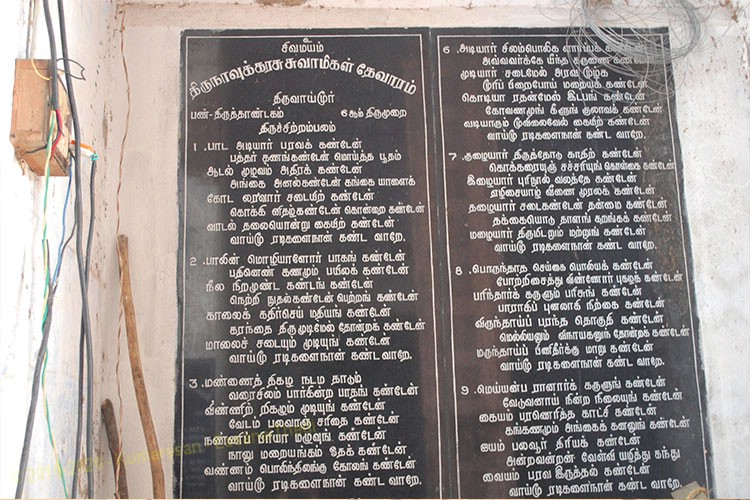 சிவமயம்
திருநாவுக்கரசு சுவாமிகள் தேவாரம்
திருவாய்மூர்
பண்-திருத்தாண்டகம் 6ஆம் திருமுறை
திருச்சிற்றம்பலம்
1. பாட அடியார் பரவக் கண்டேன்
பத்தர் கணங்கண்டேன் மொய்த்த பூதம்
ஆடல் முழவம் அதிரக் கண்டேன்
அங்கை அனல்கண்டேன் கங்கை யாளைக்
கோட லரவார் சடையிற் கண்டேன்
கொக்கி னிதழ்கண்டேன் கொன்றை கண்டேன்
வாடல் தலையொன்று கையிற் கண்டேன்
வாய்மூ ரடிகளைநான் கண்ட வாறே.
2. பாலின் மொழியாளோர் பாகங் கண்டேன்
பதினெண் கணமும் பயிலக் கண்டேன்
நீல நிறமுண்ட கண்டங் கண்டேன்
நெற்றி நுதல்கண்டேன் பெற்றங் கண்டேன்
காலைக் கதிர்செய் மதியங் கண்டேன்
கரந்தை திருமுடிமேல் தோன்றக் கண்டேன்
மாலைச் சடையும் முடியுங் கண்டேன்
வாய்மூ ரடிகளைநான் கண்ட வாறே.
3. மண்ணைத் திகழ நடம தாடும்
வரைசிலம் பார்கின்ற பாதங் கண்டேன்
விண்ணிற் றிகழும் முடியுங் கண்டேன்
வேடம் பலவாஞ் சரிதை கண்டேன்
நண்ணிப் பிரியா மழுவுங் கண்டேன்
நாலு மறையங்கம் ஓதக் கண்டேன்
வண்ணம் பொலிந்திலங்கு கோலங் கண்டேன்
வாய்மூ ரடிகளைநான் கண்ட வாறே.
6. அடியார் சிலம்பொலிக ளார்ப்பக் கண்டேன்
அவ்வவர்க்கே யீந்த கருணை கண்டேன்
முடியார் சடைமேல் அரவ மூழ்க
மூரிப் பிறைபோய் மறையக் கண்டேன்
கொடியா ரதன்மேல் இடபங் கண்டேன்
கோவணமும் கீளுங் குலாவக் கண்டேன்
வடியாரும் மூவிலைவேல் கையிற் கண்டேன்
வாய்மூ ரடிகளைநான் கண்ட வாறே.
7. குழையார் திருத்தோடு காதிற் கண்டேன்
கொக்கரையுஞ் சச்சரியுங் கொள்கை கண்டேன்
இழையார் புரிநூல் வலத்தே கண்டேன்
ஏழிசையாழ் வீணை முரலக் கண்டேன்
தழையார் சடைகண்டேன் தன்மை கண்டேன்
தக்கையொடு தாளங் கறங்கக் கண்டேன்
மழையார் திருமிடறும் மற்றுங் கண்டேன்
வாய்மூ ரடிகளைநான் கண்ட வாறே.
8. பொருந்தாத செய்கை பொலியக் கண்டேன்
போற்றிசைத்து விண்ணோர் புகழக் கண்டேன்
பரிந்தார்க் கருளும் பரிசுங் கண்டேன்
பாராகிப் புனலாகி நிற்கை கண்டேன்
விருந்தாய்ப் பரந்த தொகுதி கண்டேன்
மெல்லியலும் விநாயகனுந் தோன்றக் கண்டேன்
மருந்தாய்ப் பிணிதீர்க்கு மாறு கண்டேன்
வாய்மூ ரடிகளைநான் கண்ட வாறே.
9. மெய்யன்ப ரானார்க் கருளுங் கண்டேன்
வேடுவனாய் நின்ற நிலையுங் கண்டேன்
கையம் பரணெரித்த காட்சி கண்டேன்
கங்கணமும் அங்கைக் கனலுங் கண்டேன்
ஐயம் பலவூர் திரியக் கண்டேன்
அன்றவன்றன் வேள்வி யழித்து கந்து
வையம் பரவ இருத்தல் கண்டேன்
வாய்மூ ரடிகளைநான் கண்ட வாறே.